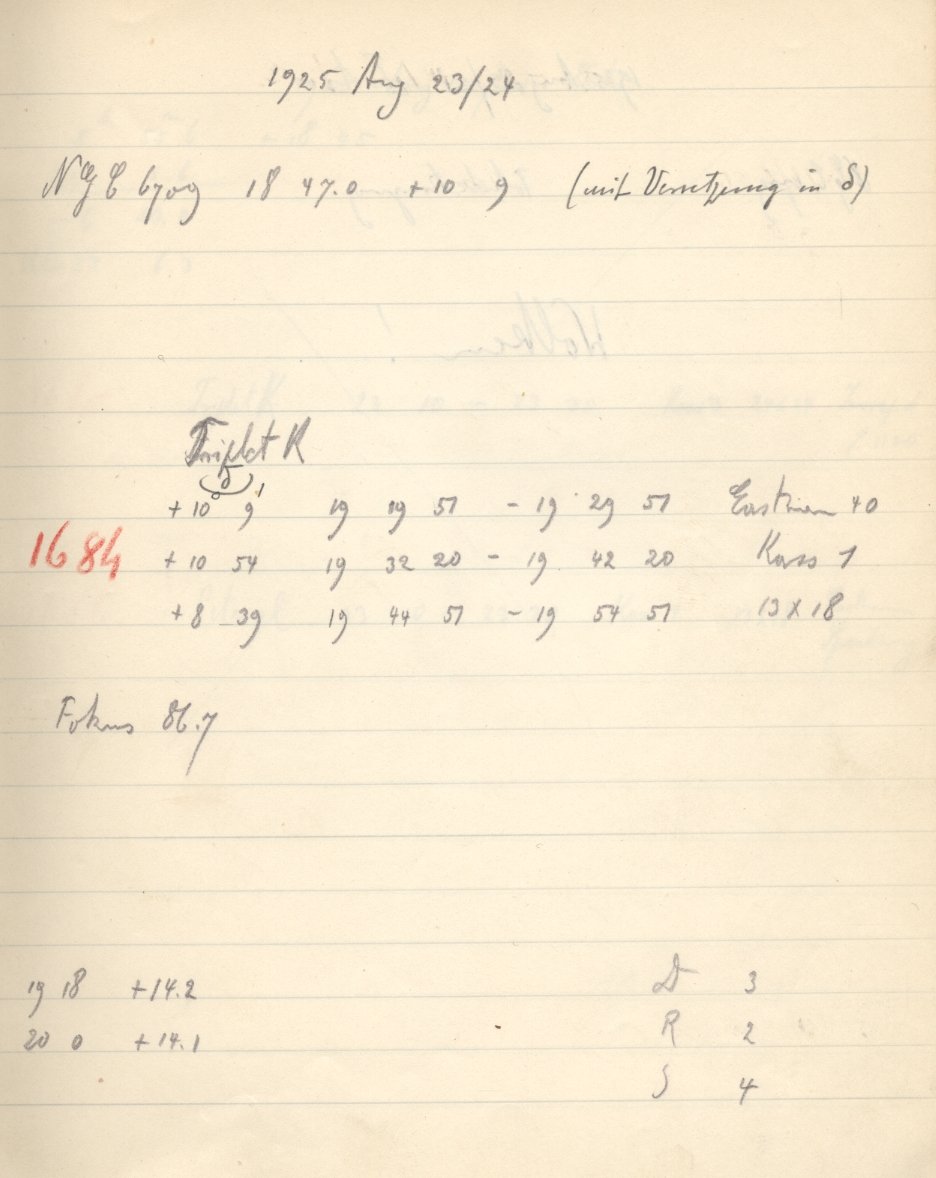 1925 Aug 23/24
NGC 6709 18 47.0 +10 9 (mit Versetzung in δ)
Triplet R
δ
+10° 9' 19 19 51 – 19 29 51 Eastman 40
1684 +10 54 19 32 20 – 19 42 20 Kass 1
+8 39 19 44 51 – 19 54 51 13 x 18
Fokus 86.7
19 18 +14.2 D 3
20 0 +14.1 R 2
S 4